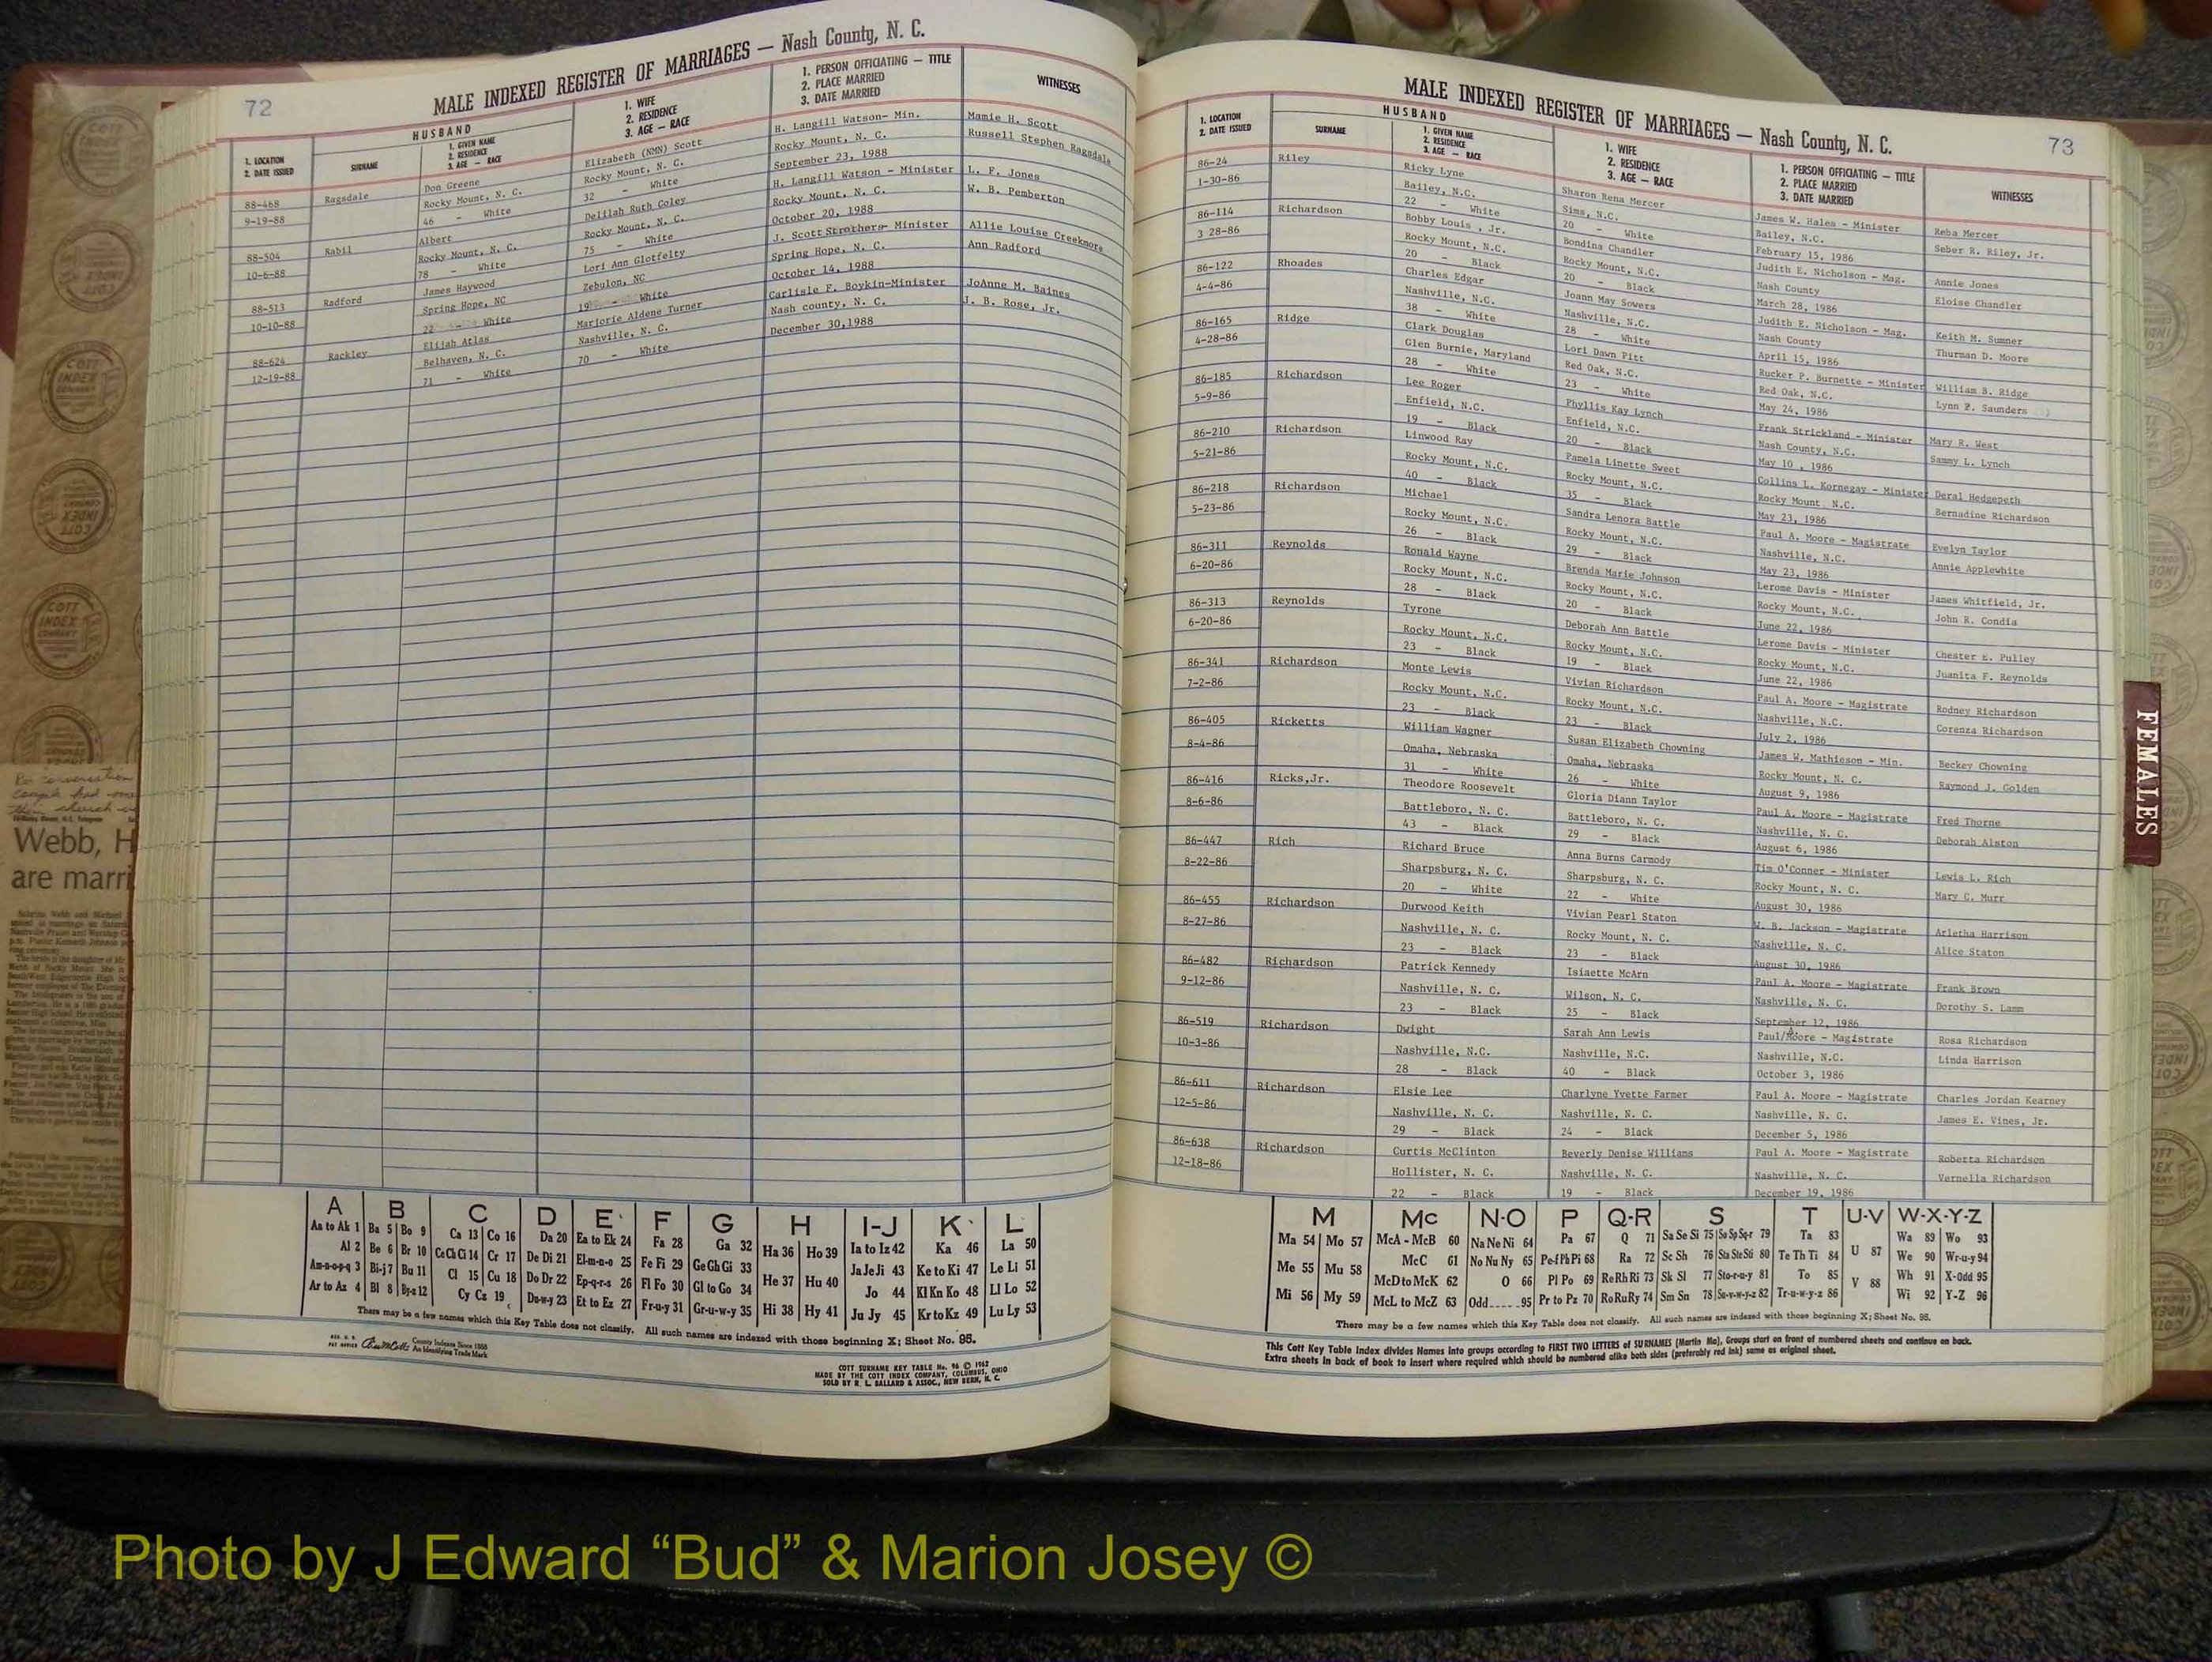 72
MALE INDEXED REGISTER OF MARRIAGES — Nash County, N. C.
1. LOCATION
2. DATE ISSUED
SURNAME
HUSBAND
1. GIVEN NAME
2. RESIDENCE
3. AGE — RACE
1. WIFE
2. RESIDENCE
3. AGE — RACE
1. PERSON OFFICIATING — TITLE
2. PLACE MARRIED
3. DATE MARRIED
WITNESSES
88-468 Ragsdale Don Greene Elizabeth (NMN) Scott H. Langill Watson- Min. Mamie H. Scott
9-19-88 Rocky Mount, N. C. Rocky Mount, N. C. Rocky Mount, N. C. Russell Stephen Ragsdale
46 - White 32 - White September 23, 1988
88-504 Rabil Albert Delilah Ruth Coley H. Langill Watson - Minister L. F. Jones
10-6-88 Rocky Mount, N. C. Rocky Mount, N. C. Rocky Mount, N. C. W. B. Pemberton
78 - White 75 - White October 20, 1988
88-513 Radford James Haywood Lori Ann Glotfelty J. Scott Strothers- Minister Allie Louise Creekmore
10-10-88 Spring Hope, NC Zebulon, NC Spring Hope, N. C. Ann Radford
22 - White 19 - White October 14, 1988
88-624 Rackley Elijah Atlas Marjorie Aldene Turner Carlisle F. Boykin-Minister JoAnne M. Baines
12-19-88 Belhaven, N. C. Nashville, N. C. Nash county, N. C. J. B. Rose, Jr.
71 - White 70 - White December 30,1988
A B C D E F G H I-J K L
Aa to Ak 1 Ba 5 Bo 9 Ca 13 Co 16 Da 20 Ea to Ek 24 Fa 28 Ga 32 Ha 36 Ho 39 Ia to Iz 42 Ka 46 La 50
Al 2 Be 6 Br 10 Ce Ch Ci 14 Cr 17 De Di 21 El-m-n-o 25 Fe Fi 29 Ge Gh Gi 33 Ja Je Ji 43 Ke to Ki 47 Le Li 51
Am-n-o-p-q 3 Bi-j 7 Bu 11 Cl 15 Cu 18 Do Dr 22 Ep-q-r-s 26 Fl Fo 30 Gl to Go 34 He 37 Hu 40 Jo 44 Kl Kn Ko 48 Ll Lo 52
Ar to Az 4 Bl 8 By-z 12 Cy Cz 19 Du-w-y 23 Et to Ez 27 Fr-u-y 31 Gr-u-w-y 35 Hi 38 Hy 41 Ju Jy 45 Kr to Kz 49 Lu Ly 53
There may be a few names which this Key Table does not classify. All such names are indexed with those beginning X; Sheet No. 95.
County Indexes Since 1888
An Identifying Trade Mark
COTT SURNAME KEY TABLE No. 96 © 1962
MADE BY THE COTT INDEX COMPANY, COLUMBUS, OHIO
SOLD BY R. L. BALLARD & ASSOC., NEW BERN, N. C.
MALE INDEXED REGISTER OF MARRIAGES — Nash County, N. C.
73
1. LOCATION
2. DATE ISSUED
SURNAME
HUSBAND
1. GIVEN NAME
2. RESIDENCE
3. AGE — RACE
1. WIFE
2. RESIDENCE
3. AGE — RACE
1. PERSON OFFICIATING — TITLE
2. PLACE MARRIED
3. DATE MARRIED
WITNESSES
86-24 Riley Ricky Lyne Sharon Rena Mercer James W. Hales - Minister Reba Mercer
1-30-86 Bailey, N.C. Sims, N.C. Bailey, N.C. Seber R. Riley, Jr.
22 - White 20 - White February 15, 1986
86-114 Richardson Bobby Louis , Jr. Bondina Chandler Judith E. Nicholson - Mag. Annie Jones
3 28-86 Rocky Mount, N.C. Rocky Mount, N.C. Nash County Eloise Chandler
20 - Black 20 - Black March 28, 1986
86-122 Rhoades Charles Edgar Joann May Sowers Judith E. Nicholson - Mag. Keith M. Sumner
4-4-86 Nashville, N.C. Nashville, N.C. Nash County Thurman D. Moore
38 - White 28 - White April 15, 1986
86-165 Ridge Clark Douglas Lori Dawn Pitt Rucker P. Burnette - Minister William B. Ridge
4-28-86 Glen Burnie, Maryland Red Oak, N.C. Red Oak, N.C. Lynn P. Saunders
28 - White 23 - White May 24, 1986
86-185 Richardson Lee Roger Phyllis Kay Lynch Frank Strickland - Minister Mary R. West
5-9-86 Enfield, N.C. Enfield, N.C. Nash County, N.C. Sammy L. Lynch
19 - Black 20 - Black May 10 , 1986
86-210 Richardson Linwood Ray Pamela Linette Sweet Collins L. Kornegay - Minister Deral Hedgepeth
5-21-86 Rocky Mount, N.C. Rocky Mount, N.C. Rocky Mount N.C. Bernadine Richardson
40 - Black 35 - Black May 23, 1986
86-218 Richardson Michael Sandra Lenora Battle Paul A. Moore - Magistrate Evelyn Taylor
5-23-86 Rocky Mount, N.C. Rocky Mount, N.C. Nashville, N.C. Annie Applewhite
26 - Black 29 - Black May 23, 1986
86-311 Reynolds Ronald Wayne Brenda Marie Johnson Lerome Davis - Minister James Whitfield, Jr.
6-20-86 Rocky Mount, N.C. Rocky Mount, N.C. Rocky Mount, N.C. John R. Condia
28 - Black 20 - Black June 22, 1986
86-313 Reynolds Tyrone Deborah Ann Battle Lerome Davis - Minister Chester E. Pulley
6-20-86 Rocky Mount, N.C. Rocky Mount, N.C. Rocky Mount, N.C. Juanita F. Reynolds
23 - Black 19 - Black June 22, 1986
86-341 Richardson Monte Lewis Vivian Richardson Paul A. Moore - Magistrate Rodney Richardson
7-2-86 Rocky Mount, N.C. Rocky Mount, N.C. Nashville, N.C. Corenza Richardson
23 - Black 23 - Black July 2, 1986
86-405 Ricketts William Wagner Susan Elizabeth Chowning James W. Mathieson - Min. Beckey Chowning
8-4-86 Omaha, Nebraska Omaha, Nebraska Rocky Mount, N. C. Raymond J. Golden
31 - White 26 - White August 9, 1986
86-416 Ricks,Jr. Theodore Roosevelt Gloria Diann Taylor Paul A. Moore - Magistrate Fred Thorne
8-6-86 Battleboro, N. C. Battleboro, N. C. Nashville, N. C. Deborah Alston
43 - Black 29 - Black August 6, 1986
86-447 Rich Richard Bruce Anna Burns Carmody Tim O'Conner - Minister Lewis L. Rich
8-22-86 Sharpsburg, N. C. Sharpsburg, N. C. Rocky Mount, N. C. Mary C. Murr
20 - White 22 - White August 30, 1986
86-455 Richardson Durwood Keith Vivian Pearl Staton W. B. Jackson - Magistrate Arletha Harrison
8-27-86 Nashville, N. C. Rocky Mount, N. C. Nashville, N. C. Alice Staton
23 - Black 23 - Black August 30, 1986
86-482 Richardson Patrick Kennedy Isiaette McArn Paul A. Moore - Magistrate Frank Brown
9-12-86 Nashville, N. C. Wilson, N. C. Nashville, N. C. Dorothy S. Lamm
23 - Black 25 - Black September 12, 1986
86-519 Richardson Dwight Sarah Ann Lewis Paul/A Moore - Magistrate Rosa Richardson
10-3-86 Nashville, N.C. Nashville, N.C. Nashville, N.C. Linda Harrison
28 - Black 40 - Black October 3, 1986
86-611 Richardson Elsie Lee Charlyne Yvette Farmer Paul A. Moore - Magistrate Charles Jordan Kearney
12-5-86 Nashville, N. C. Nashville, N. C. Nashville, N. C. James E. Vines, Jr.
29 - Black 24 - Black December 5, 1986
86-638 Richardson Curtis McClinton Beverly Denise Williams Paul A. Moore - Magistrate Roberta Richardson
12-18-86 Hollister, N. C. Nashville, N. C. Nashville, N. C. Vernella Richardson
22 - Black 19 - Black December 19, 1986
M Mc N-O P Q-R S T U-V W-X-Y-Z
Ma 54 Mo 57 McA - McB 60 Na Ne Ni 64 Pa 67 Q 71 Sa Se Si 75 So Sp Sq-r 79 Ta 83 Wa 89 Wo 93
Me 55 Mu 58 McC 61 No Nu Ny 65 Pe-f Ph Pi 68 Ra 72 Sc Sh 76 Sta Ste Sti 80 Te Th Ti 84 U 87 We 90 Wr-u-y 94
McD to McK 62 O 66 Pl Po 69 Re Rh Ri 73 Sk Sl 77 Sto-r-u-y 81 To 85 V 88 Wh 91 X-Odd 95
Mi 56 My 59 McL to McZ 63 Odd 95 Pr to Pz 70 Ro Ru Ry 74 Sm Sn 78 Su-v-w-y-z 82 Tr-u-w-y-z 86 Wi 92 Y-Z 96
There may be a few names which this Key Table does not classify. All such names are indexed with those beginning X; Sheet No. 95.
This Cott Key Table Index divides Names into groups according to FIRST TWO LETTERS of SURNAMES (Martin Ma), Groups start on front of numbered sheets and continue on back.
Extra sheets in back of book to insert where required which should be numbered alike both sides (preferably red ink) same as original sheet.
FEMALES
COTT
INDEX
COMPANY
Webb, H
are marri
Photo by J Edward “Bud” & Marion Josey ©